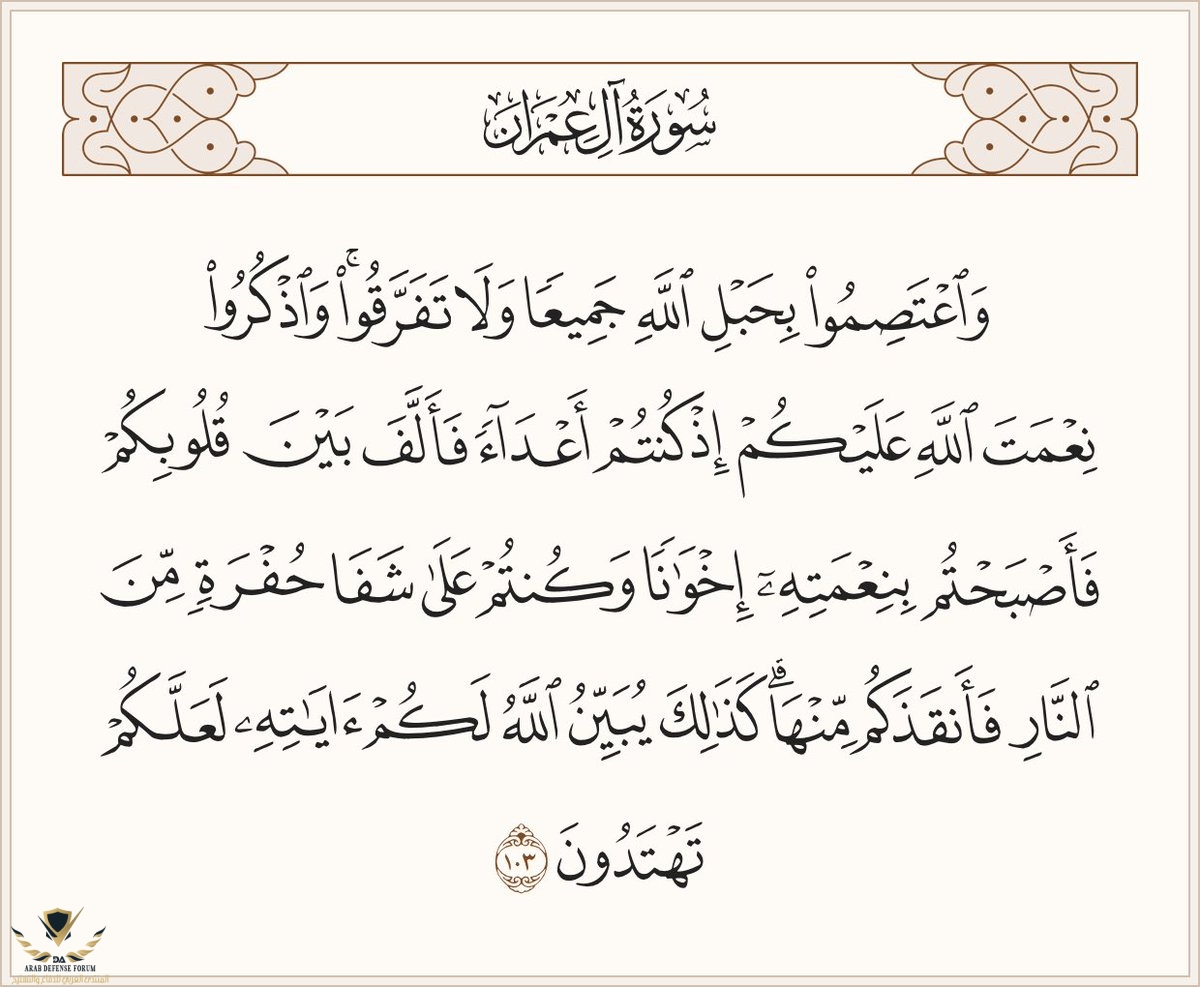 سُورَةُ آلِ عِمْرَانَ
وَٱعْتَصِمُوا۟ بِحَبْلِ ٱللَّهِ جَمِيعًا وَلَا تَفَرَّقُوا۟ۚ وَٱذْكُرُوا۟
نِعْمَتَ ٱللَّهِ عَلَيْكُمْ إِذْ كُنتُمْ أَعْدَآءً فَأَلَّفَ بَيْنَ قُلُوبِكُمْ
فَأَصْبَحْتُم بِنِعْمَتِهِۦٓ إِخْوَٰنًا وَكُنتُمْ عَلَىٰ شَفَا حُفْرَةٍ مِّنَ
ٱلنَّارِ فَأَنقَذَكُم مِّنْهَاۗ كَذَٰلِكَ يُبَيِّنُ ٱللَّهُ لَكُمْ ءَايَٰتِهِۦ لَعَلَّكُمْ
تَهْتَدُونَ ١٠٣
DA
ARAB DEFENSE FORUM
المنتدى العربي للدفاع والتسليح